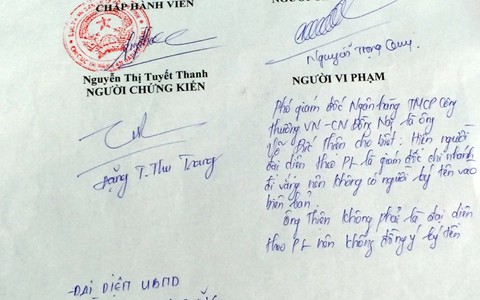 CHẤP HÀNH VIÊN
Nguyễn Thị Tuyết Thanh
NGƯỜI CHỨNG KIẾN
Đặng T. Thu Trang
ĐẠI DIỆN UBND
Nguyễn Trọng Quy
NGƯỜI VI PHẠM
Phó giám đốc Ngân hàng TMCP Công
thương VN - CN Đồng Nai là ông
Đức Thiện cho biết: Hiện người
đại diện theo PL là giám đốc chi nhánh
đi vắng nên không có người ký tên vào
biên bản.
Ông Thiện không phải là đại diện
theo PL nên không đồng ý ký tên